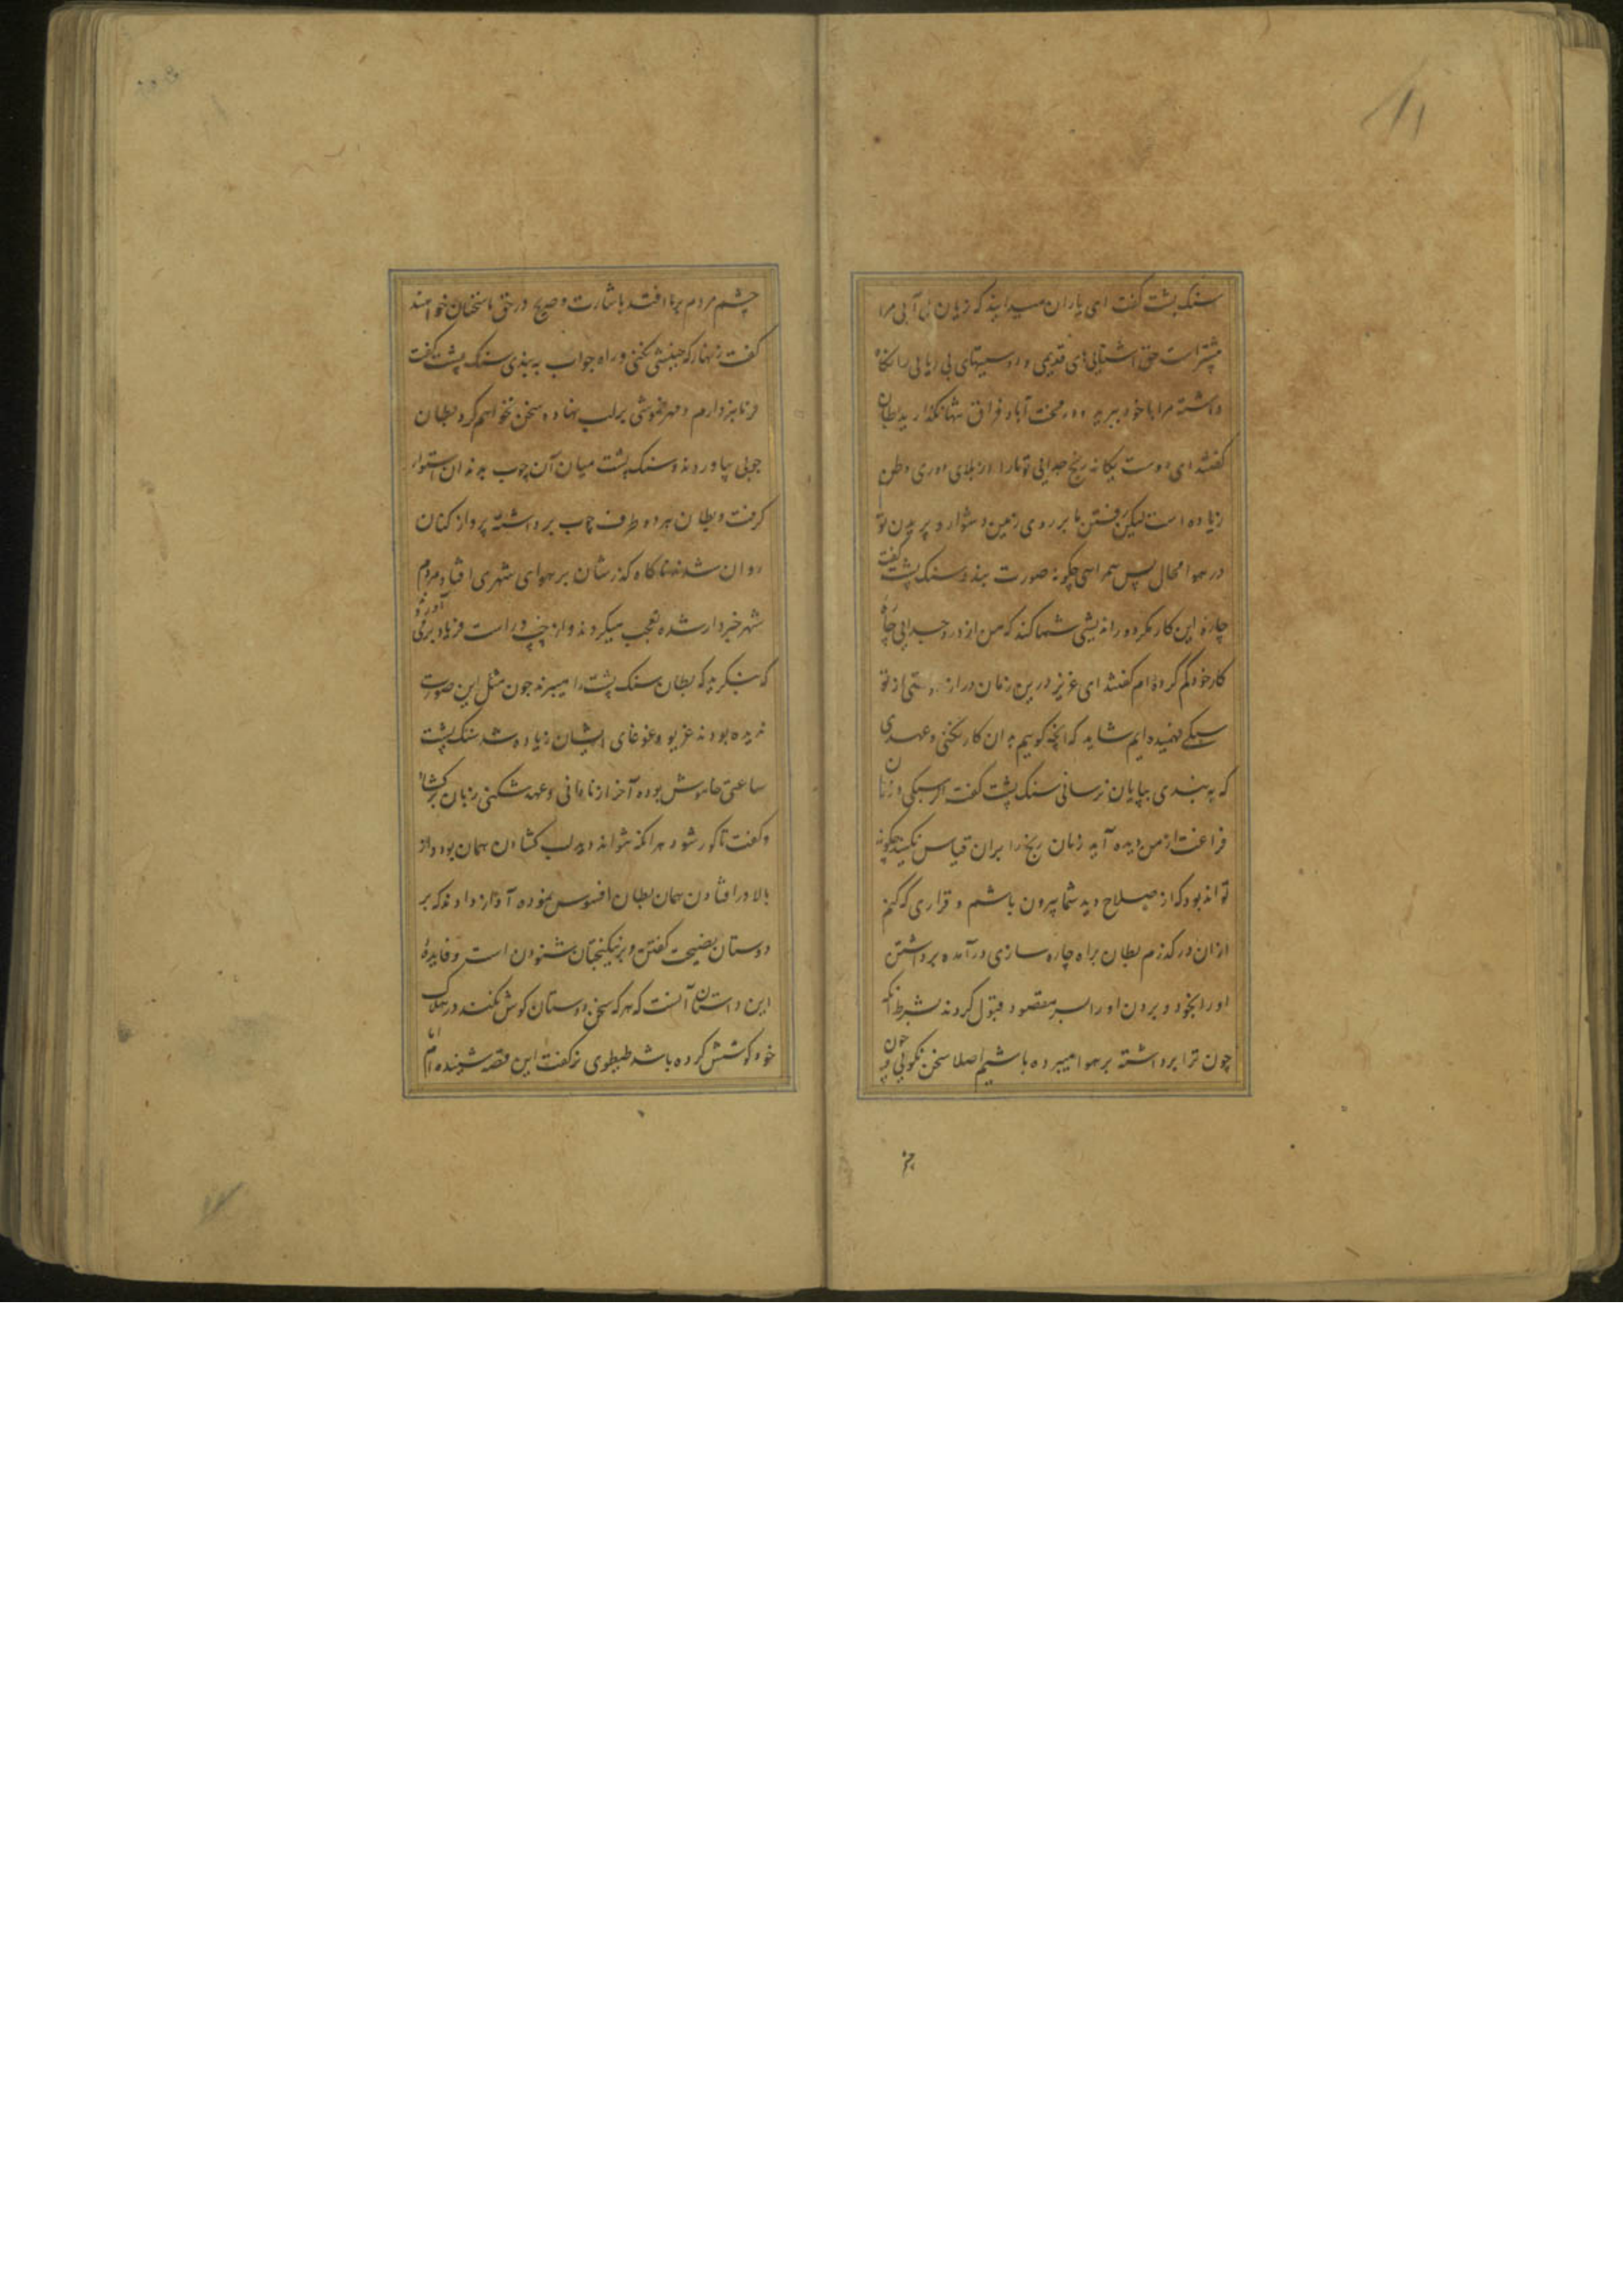 سنک پشت کفت ای یاران میدانید که زیان بی آبی مرا
بیشتر است حق آشنایی های قدیمی و دوستیهای بی ریایی را نکاه
داشته مرا با خود ببرید و در محنت آباد فراق تنها نکذارید بطان
کفتند ای دوست یکانه رنج جدایی تو ما را از بلای دوری وطن
زیاده است لیکن رفتن ما بر روی زمین دشوار و پریدن تو
در هوا محال پس همراهی چکونه صورت بندد سنک پشت کفت
چاره این کار مکر دور اندیشی شما کند که من از درد جدایی چاره
کار خود کم کرده ام کفتند ای عزیز درین زمان دراز از تو
سبکی فهمیده ایم شاید که آنچه کوییم بدان کار نکنی و عهدی
که به بندی بپایان نرسانی سنک پشت کفت اکر سبکی در زمان
فراغت از من دیده آید زمان رنج را بران قیاس نکنید چکونه
تواند بود که از صلاح دید شما بیرون باشم و قراری که کنم
ازان در کذرم بطان براه چاره سازی در آمده برداشتن
او را بخود و بردن او را بسر مقصود قبول کردند بشرط آنکه
چون ترا برداشته بر هوا میبرده باشیم اصلا سخن نکویی و چون
چشم مردم بر ما افتد باشارت و صریح در حق ما سخنان خواهند
کفت زنهار که جنبشی نکنی و راه جواب به بندی سنک پشت کفت
فرمانبردارم و مهر خموشی بر لب نهاده سخن نخواهم کرد بطان
چوبی بیاوردند و سنک پشت میان آن چوب بدندان استوار
کرفت و بطان هر دو طرف چوب برداشته پرواز کنان
روان شدند ناکاه کذرشان بر هوای شهری افتاد مردم
شهر خبردار شده تعجب میکردند و از چپ و راست فریاد بر می آوردند
که بنکرید که بطان سنک پشت را میبرند چون مثل این صورت
ندیده بودند غریو و غوغای ایشان زیاده شد سنک پشت
ساعتی خاموش بوده آخر از نادانی و عهد شکنی زبان بر کشاد
و کفت تا کور شود هر آنکه نتواند دید لب کشادن همان بود و از
بالا در افتادن همان بطان افسوس نموده آواز دادند که بر
دوستان نصیحت کفتن و بر نیکبختان شنودن است و فایده
این داستان آنست که هر که سخن دوستان کوش نکند در هلاک
خود کوشش کرده باشد طیطوی نر کفت این قصه شنیده ام اما